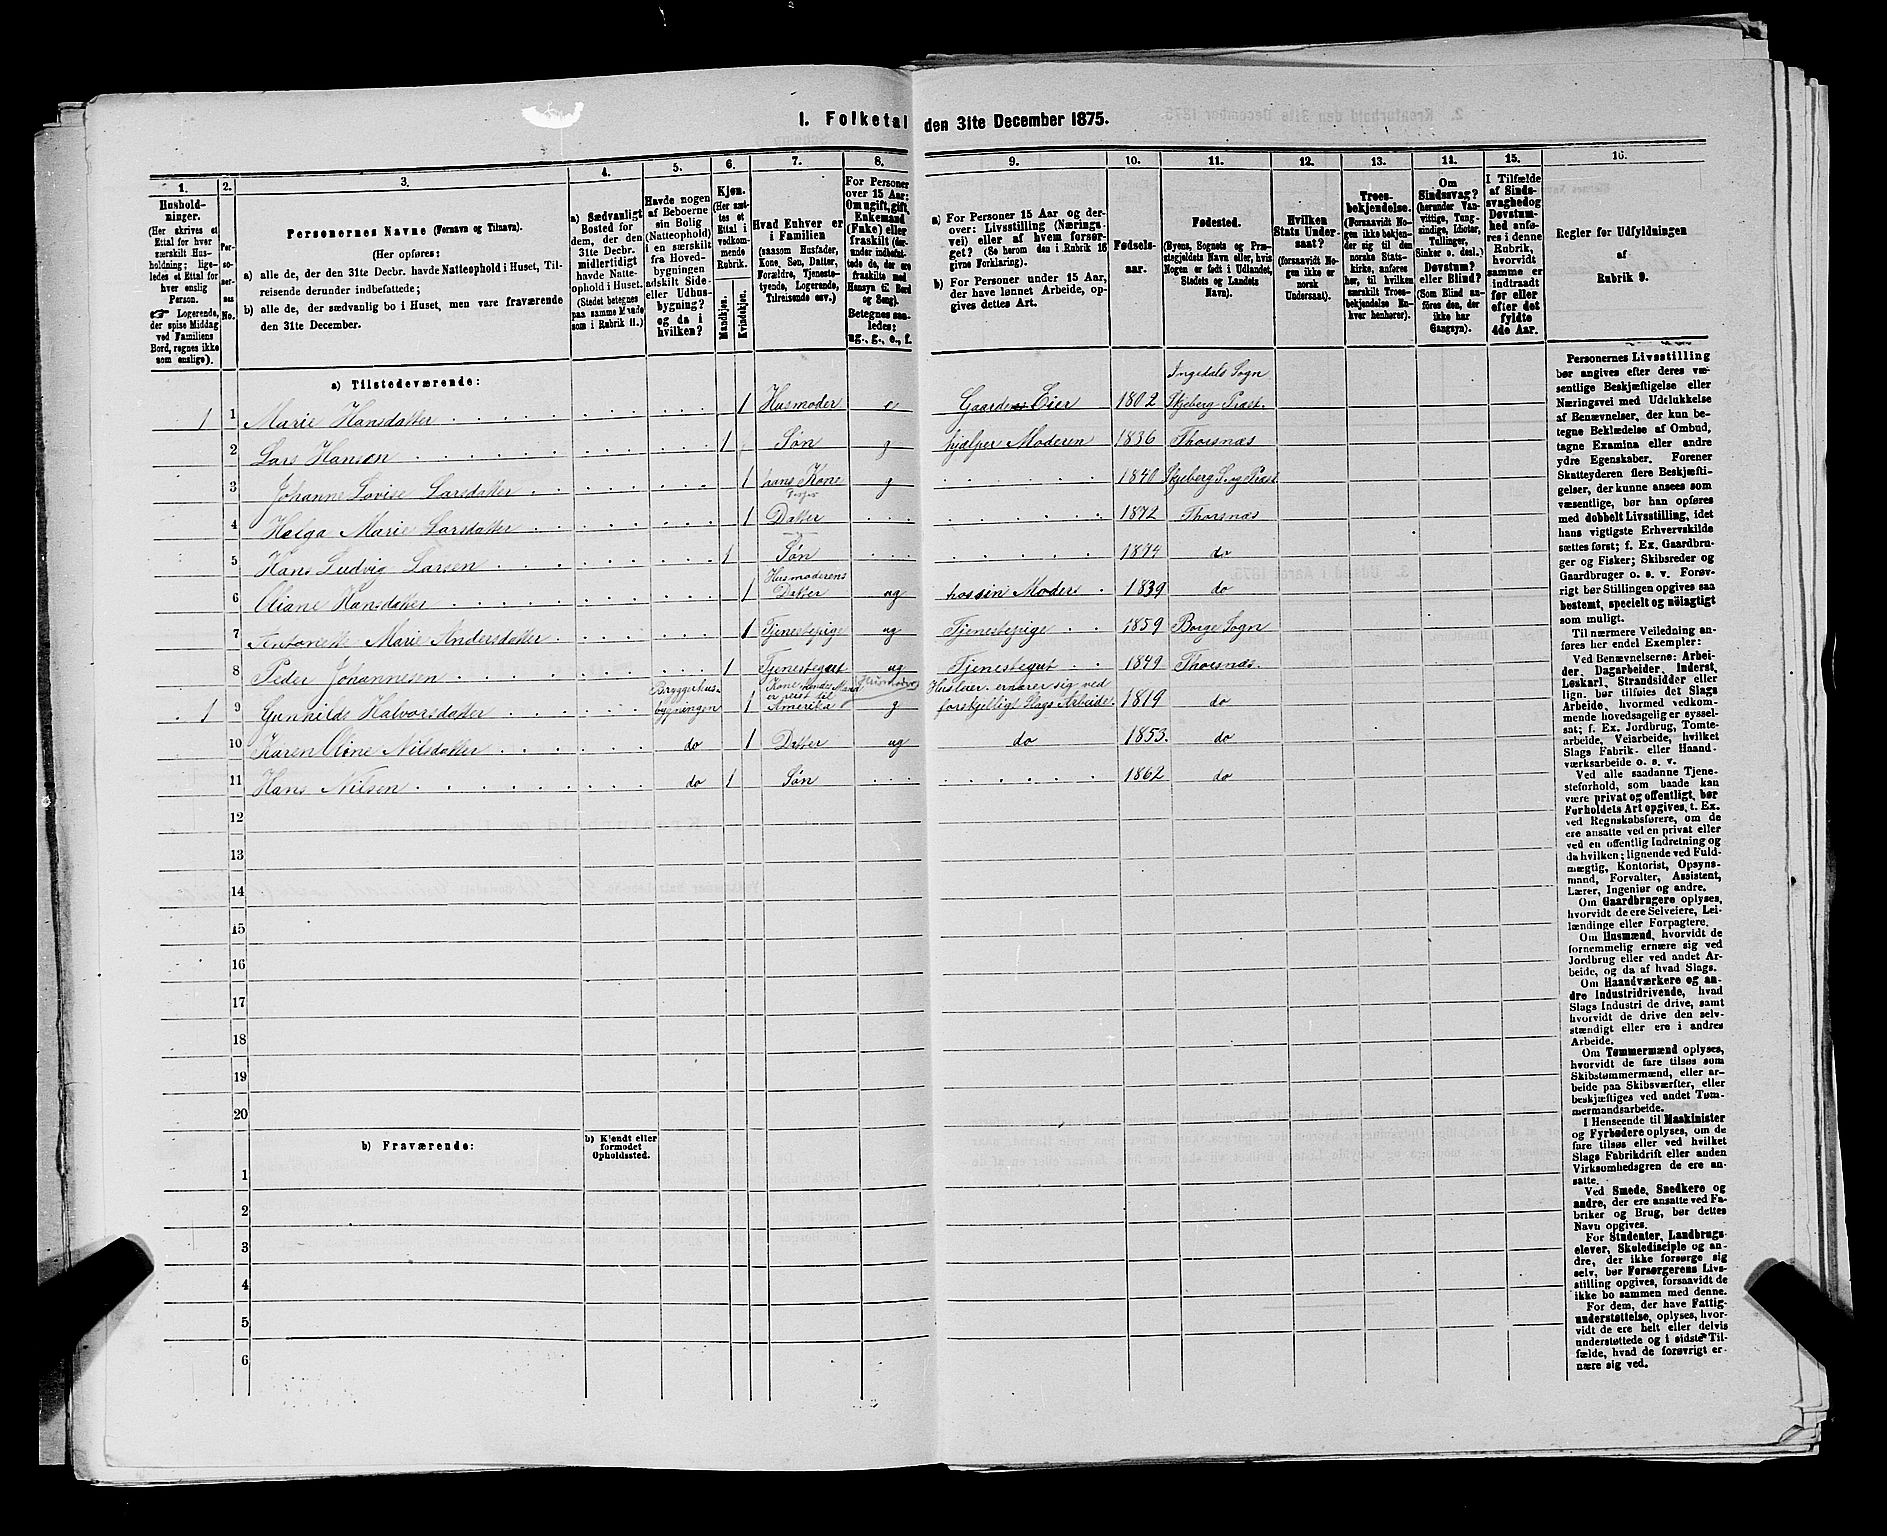 1. Folketal den 31te December 1875.
1.
2.
3.
4.
5.
6.
7.
8.
9.
10.
11.
12.
13.
14.
15.
16.
Hushold-
ninger.
(Her skrives et
Ettal for hver
særskilt Hus-
holdning; lige-
ledes et Ettal for
hver enslig
Person.
☞ Logerende,
der spise Middag
ved Familiens
Bord, regnes ikke
som enslige).
Per-
so-
ner-
nes
No.
Personernes Navne (Fornavn og Tilnavn).
(Her opføres:
a) alle de, der den 31te Decbr. havde Natteophold i Huset, Til-
reisende derunder indbefattede;
b) alle de, der sædvanlig bo i Huset, men vare fraværende
den 31te December.
a) Sædvanligt
Bosted for
dem, der den
31te Decbr.
midlertidigt
havde Natte-
ophold i Huset.
(Stedet betegnes
paa samme Maade
som i Rubrik 11.)
Havde nogen
af Beboerne
sin Bolig
(Natteophold)
i en særskilt
fra Hoved-
bygningen
adskilt Side-
eller Udhus-
bygning?
og da i
hvilken?
Kjøn.
(Her sæt-
tes et
Ettal i
vedkom-
mende
Rubrik.
Mandkjøn.
Kvindekjøn.
Hvad Enhver er
i Familien
(saasom Husfader,
Kone, Søn, Datter,
Forældre, Tjeneste-
tyende, Logerende,
Tilreisende osv.)
For Personer
over 15 Aar:
Om ugift, gift,
Enkemand
(Enke) eller
fraskilt (der-
under indbefat-
tede de, der ere
fraskilte med
Hensyn til Bord
og Seng).
Betegnes saa-
ledes:
ug., g., e., f.
a) For Personer 15 Aar og der-
over: Livsstilling (Nærings-
vei) eller af hvem forsør-
get? (Se herom den i Rubrik 16
givne Forklaring).
b) For Personer under 15 Aar,
der have lønnet Arbeide, op-
gives dettes Art.
Fødsels-
aar.
Fødested.
(Byens, Sognets og Præ-
stegjeldets Navn eller, hvis
Nogen er født i Udlandet,
Stedets og Landets
Navn).
Hvilken
Stats Under-
saat?
(forsaavidt No-
gen ikke er
norsk
Undersaat).
Troes-
bekjendelse.
(Forsaavidt No-
gen ikke bekjen-
der sig til den
norske Stats-
kirke, anføres
her, til hvilken
særskilt Troes-
bekjendelse En-
hver henhører).
Om
Sindssvag?
(herunder Van-
vittige, Tung-
sindige, Idioter,
Tullinger,
Sinker o. desl.)
Døvstum?
eller Blind?
(Som Blind an-
føres den, der
ikke har
Gangsyn).
I Tilfælde
af Sinds-
svaghed og
Døvstum-
hed anfø-
res i denne
Rubrik,
hvorvidt
samme er
indtraadt
før eller
efter det
fyldte
4de Aar.
Regler for Udfyldningen
af
Rubrik 9.
a) Tilstedeværende:
Ingedals Sogn
1 1 Marie Hansdatter 1 Husmoder e Gaardens Eier 1802 Skjeberg Præst.
2 Lars Hansen 1 Søn g hjælper Moderen 1836 Thorsnæs
3 Johanne Lovise Larsdatter 1 hans Kone g 1840 Skjeberg S. og Præst
4 Helga Marie Larsdatter 1 Datter 1872 Thorsnæs
5 Hans Ludvig Larsen 1 Søn 1874 do
6 Oliane Hansdatter 1 Husmoderens Datter ug hos sin Moder 1839 do
7 Antonette Marie Andersdatter 1 Tjenestepige ug Tjenestepige 1859 Borge Sogn
8 Peder Johannesen 1 Tjenestegut ug Tjenestegut 1849 Thorsnæs
1 9 Gunhilde Halvorsdatter Bryggerhus-bygningen 1 Kone, hendes Mand er reist til Amerika g Husleier. ernærer sig ved forskjelligt Slags Arbeide. 1819 do
10 Karen Oline Nilsdatter do 1 Datter ug do 1853. do
11 Hans Nilsen do 1 Søn 1862 do
12
13
14
15
16
17
18
19
20
b) Fraværende:
b) Kjendt eller
formodet
Opholdssted.
1
2
3
4
5
6
Personernes Livsstilling
bør angives efter deres væ-
sentlige Beskjæftigelse eller
Næringsvei med Udelukkelse
af Benævnelser, der kun be-
tegne Beklædelse af Ombud,
tagne Examina eller andre
ydre Egenskaber. Forener
Skatteyderen flere Beskjæfti-
gelser, der kunne ansees som
væsentlige, bør han opføres
med dobbelt Livsstilling, idet
hans vigtigste Erhvervskilde
sættes først; f. Ex. Gaardbru-
ger og Fisker; Skibsreder og
Gaardbruger o. s. v. Forøv-
rigt bør Stillingen opgives saa
bestemt, specielt og nøiagtigt
som muligt.
Til nærmere Veiledning an-
føres her endel Exempler:
Ved Benævnelserne: Arbei-
der, Dagarbeider, Inderst,
Løskarl, Strandsidder eller
lign. bør tilføies det Slags
Arbeide, hvormed vedkom-
mende hovedsagelig er syssel-
sat; f. Ex. Jordbrug, Tomte-
arbeide, Veiarbeide, hvilket
Slags Fabrik- eller Haand-
værksarbeide o. s. v.
Ved alle saadanne Tjene-
steforhold, som baade kan
være privat og offentligt, bør
Forholdets Art opgives, t. Ex.
ved Regnskabsførere, om de
ere ansatte ved en privat eller
ved en offentlig Indretning og
da hvilken; lignende ved Fuld-
mægtig, Kontorist, Opsyns-
mand, Forvalter, Assistent,
Lærer, Ingeniør og andre.
Om Gaardbrugere oplyses,
hvorvidt de ere Selveiere, Lei-
lændinge eller Forpagtere.
Om Husmænd, hvorvidt de
fornemmelig ernære sig ved
Jordbrug eller ved andet Ar-
beide, og da af hvad Slags.
Om Haandværkere og an-
dre Industridrivende, hvad
Slags Industri de drive, samt
hvorvidt de drive den selv-
stændigt eller ere i andres
Arbeide.
Om Tømmermænd oplyses,
hvorvidt de fare tilsøs som
Skibstømmermænd, eller ar-
beide paa Skibsværfter, eller
beskjæftiges ved andet Tøm-
mermandsarbeide.
I Henseende til Maskinister
og Fyrbødere oplyses, om de
fare tilsøs eller ved hvilket
Slags Fabrikdrift eller anden
Virksomhedsgren de ere an-
satte.
Ved Smede, Snedkere og
andre, der ere ansatte ved Fa-
briker og Brug, bør dettes
Navn opgives.
For Studenter, Landbrugs-
elever, Skoledisciple og an-
dre, der ikke forsørge sig
selv, bør Forsørgerens Livs-
stilling opgives, forsaavidt de
ikke bo sammen med denne.
For dem, der have Fattig-
understøttelse, oplyses, hvor-
vidt de ere helt eller delvis
understøttede og i sidste Til-
fælde, hvad de forøvrigt er-
nære sig ved.